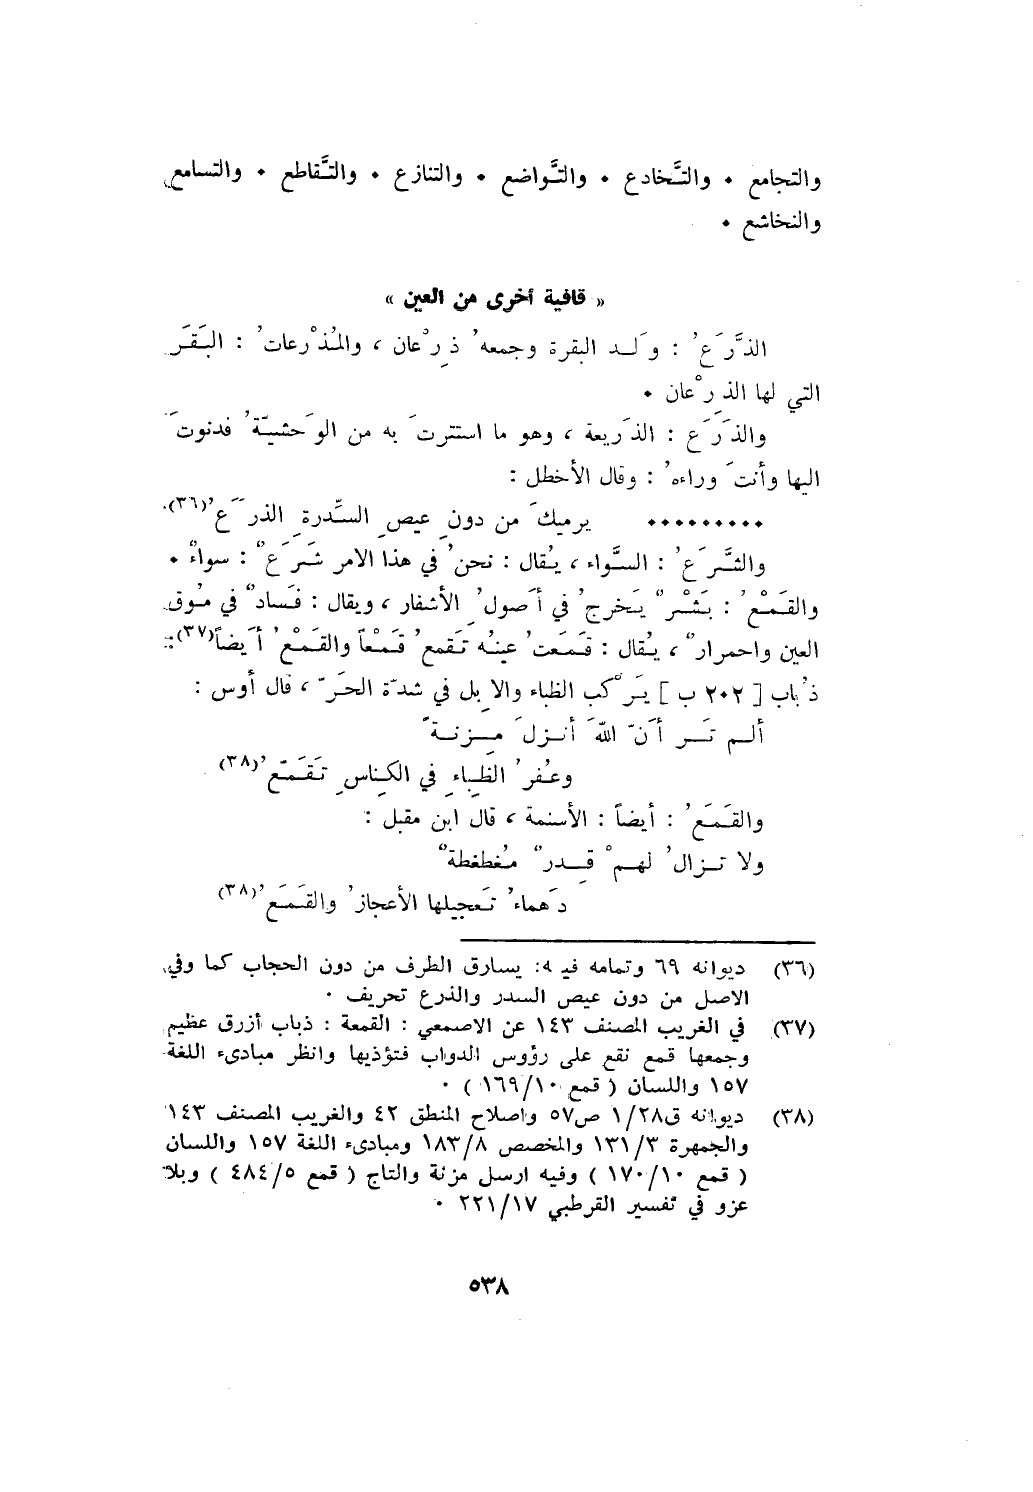 والتجامع • والتَّخادع • والتَّواضع • والتنازع • والتَّقاطع • والتسامع
والتخاشع •
« قافية أخرى من العين »
الذَّرَعُ : وَلَد البقرة وجمعهُ ذِرْعان ، والمُذْرعاتُ : البَقَر
التي لها الذِرْعان •
والذَرَع : الذَريعة ، وهو ما استترتَ به من الوَحشيّةُ فدنوتَ
اليها وأنتَ وراءهُ : وقال الأخطل :
••••••••• يرميكَ من دونِ عيصِ السِّدرةِ الذرَعُ(٣٦)
والشَّرَعُ : السَّواء ، يُقال : نحنُ في هذا الامر شَرَعٌ : سواءٌ •
والقَمْعُ : بَثْرٌ يَخرجُ في أَصولِ الأشفار ، ويقال : فَسادٌ في مُوق
العين واحمرارٌ ، يُقال : قَمَعَتْ عينُه تَقمعُ قَمْعاً والقَمْعُ أَيضاً(٣٧):
ذُباب [ ٢٠٢ ب ] يَرْكب الظباء والإبل في شدّة الحَرّ ، قال أوس :
ألم تَر أَنّ اللهَ أنزلَ مِزنةً
وعُفرُ الظِباءِ في الكِناسِ تَقَمّعُ(٣٨)
والقَمَعُ : أيضاً : الأسنمة ، قال ابن مقبل :
ولا تزالُ لهمْ قِدرٌ مُغطغطةٌ
دَهماءُ تَعجيلها الأعجازُ والقَمَعُ(٣٨)
(٣٦) ديوانه ٦٩ وتمامه فيه : يسارق الطرف من دون الحجاب كما وفي
الاصل من دون عيص السدر والذرع تحريف •
(٣٧) في الغريب المصنف ١٤٣ عن الاصمعي : القمعة : ذباب أزرق عظيم
وجمعها قمع نقع على رؤوس الدواب فتؤذيها وانظر مبادىء اللغة
١٥٧ واللسان ( قمع ١٦٩/١٠ ) •
(٣٨) ديوانه ق١/٢٨ ص٥٧ واصلاح المنطق ٤٢ والغريب المصنف ١٤٣
والجمهرة ١٣١/٣ والمخصص ١٨٣/٨ ومبادىء اللغة ١٥٧ واللسان
( قمع ١٧٠/١٠ ) وفيه ارسل مزنة والتاج ( قمع ٤٨٤/٥ ) وبلا
عزو في تفسير القرطبي ٢٢١/١٧ •
٥٣٨